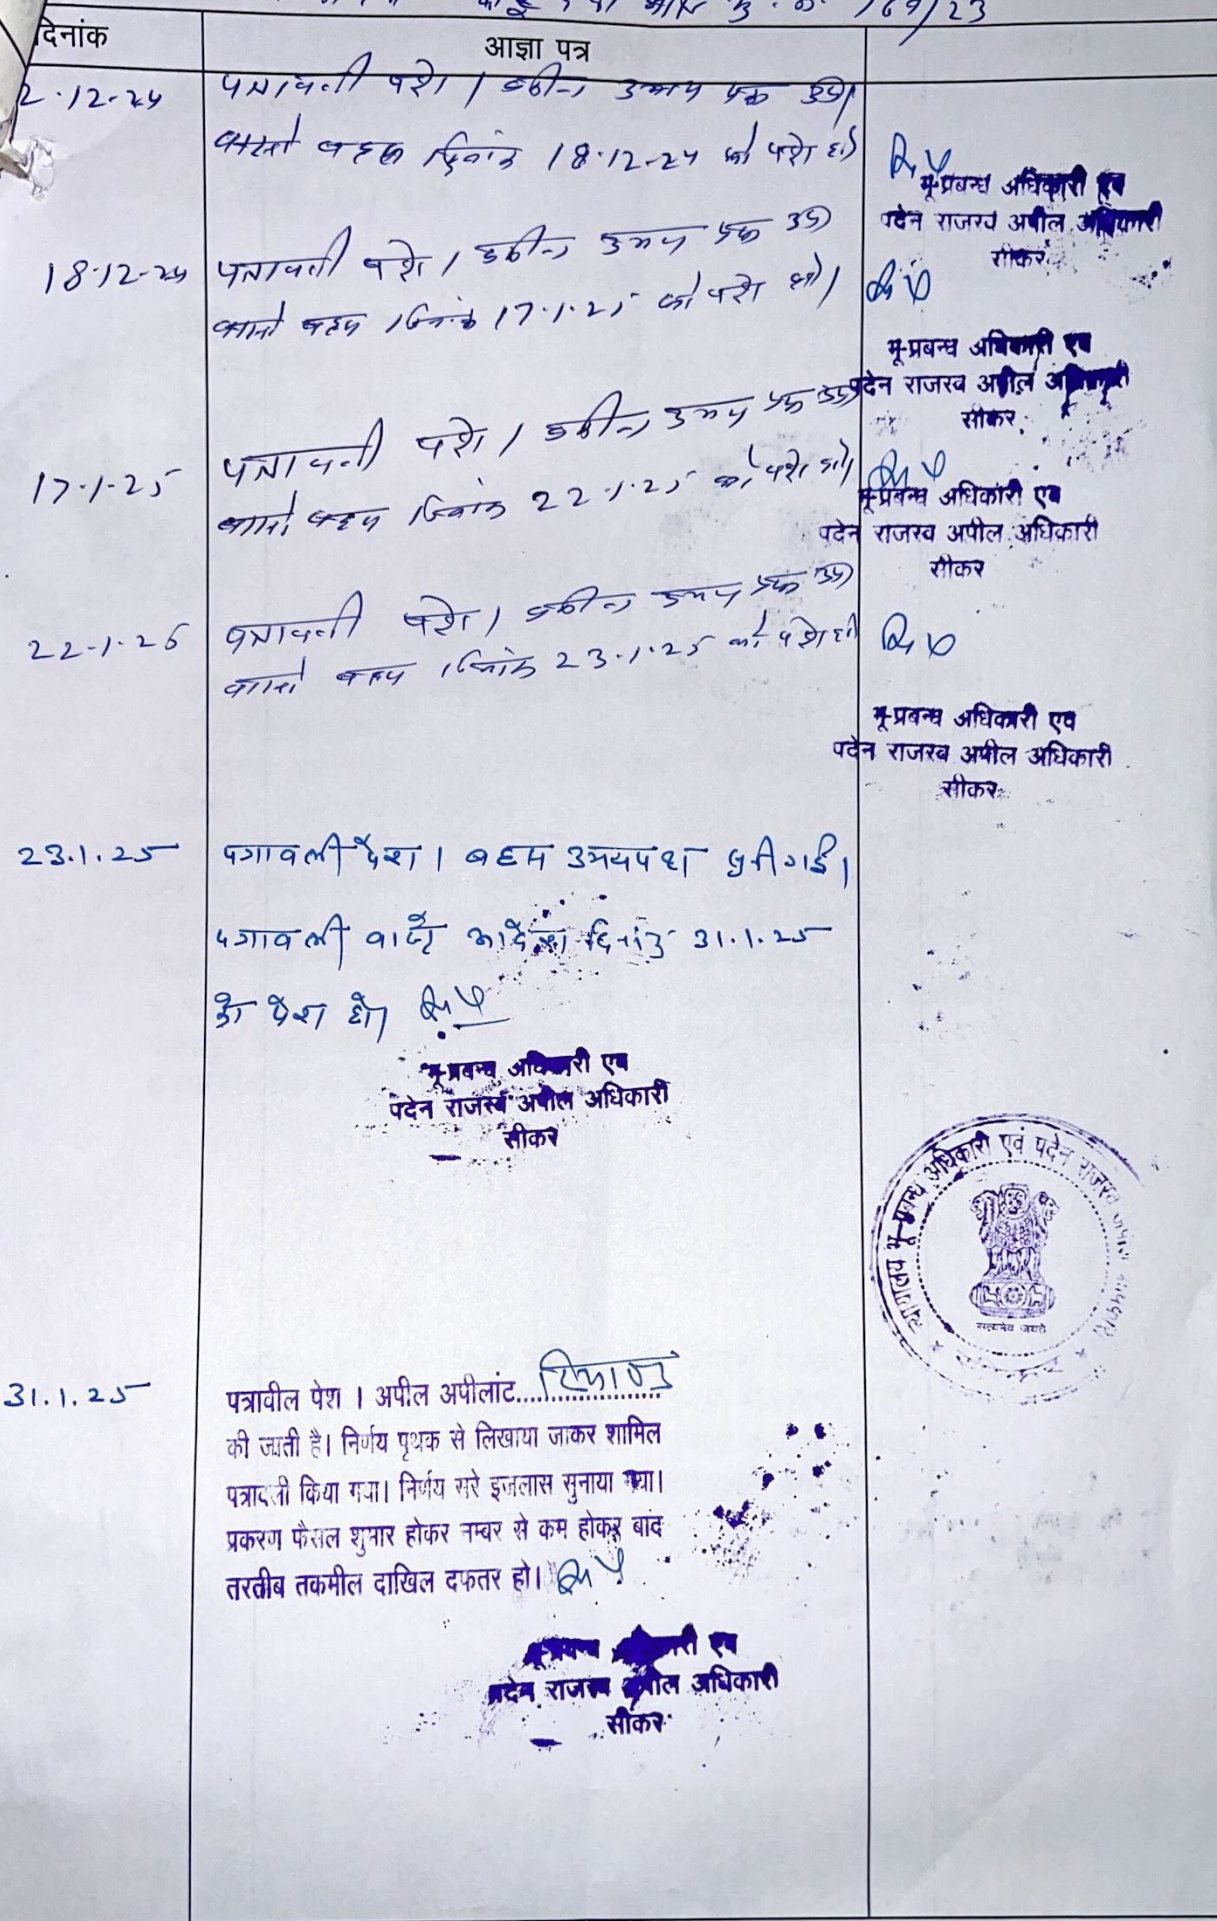 169/23
दिनांक
आज्ञा पत्र
2-12-24
पत्रावली पेश। वकील उभय पक्ष उप।
वास्ते बहस दिनांक 18-12-24 को पेश हो
भू-प्रबन्ध अधिकारी एव
पदेन राजस्व अपील अधिकारी
सीकर
18-12-24
पत्रावली पेश। वकील उभय पक्ष उप
वास्ते बहस दिनांक 17-1-25 को पेश हो।
भू-प्रबन्ध अधिकारी एव
पदेन राजस्व अपील अधिकारी
सीकर
17-1-25
पत्रावली पेश। वकील उभय पक्ष उप
वास्ते बहस दिनांक 22-1-25 को पेश हो।
भू-प्रबन्ध अधिकारी एव
पदेन राजस्व अपील अधिकारी
सीकर
22-1-25
पत्रावली पेश। वकील उभय पक्ष उप
वास्ते बहस दिनांक 23-1-25 को पेश हो
भू-प्रबन्ध अधिकारी एव
पदेन राजस्व अपील अधिकारी
सीकर
23.1.25
पत्रावली पेश। बहस उभयपक्ष सुनी गई।
पत्रावली वास्ते आदेश दिनांक 31.1.25
को पेश हो।
भू-प्रबन्ध अधिकारी एव
पदेन राजस्व अपील अधिकारी
सीकर
न्यायालय भू-प्रबन्ध अधिकारी एवं पदेन राजस्व अपील अधिकारी
सत्यमेव जयते
31.1.25
पत्रावील पेश । अपील अपीलांट..................
की जाती है। निर्णय पृथक से लिखाया जाकर शामिल
पत्रावली किया गया। निर्णय सरे इजलास सुनाया गया।
प्रकरण फैसल शुमार होकर नम्बर से कम होकर बांद
तरतीब तकमील दाखिल दफतर हो।
भू-प्रबन्ध अधिकारी एव
पदेन राजस्व अपील अधिकारी
सीकर